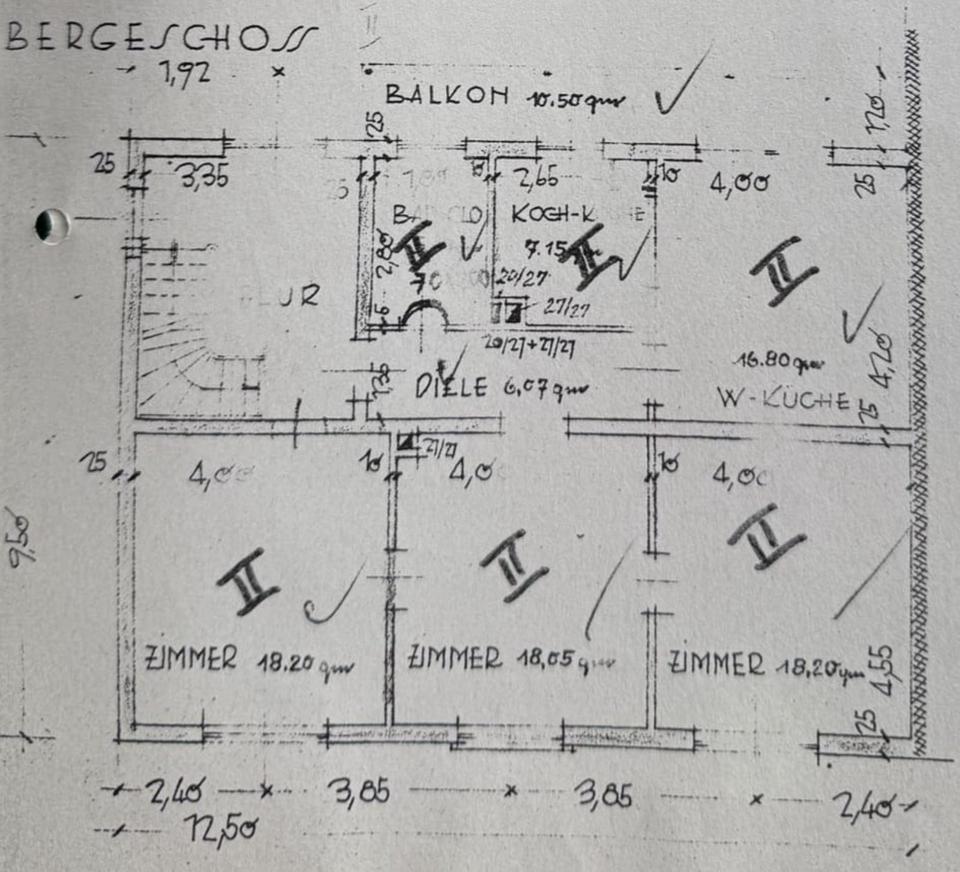 BERGESCHOSS
1,92
BALKON 10.50 qm
1,20
25
25
3,35
25
1,89
10
2,65
10
4,00
25
BAD-CLO
KOCH-KÜCHE
II
7.15
II
II
2,80
20/27
27/27
FLUR
20/27+27/27
16.80 qm
4,20
1,35
DIELE 6,07 qm
W-KÜCHE
25
27/27
25
4,00
10
4,00
10
4,00
II
II
II
9,50
ZIMMER 18.20 qm
ZIMMER 18,05 qm
ZIMMER 18,20 qm
4,55
25
2,40
3,85
3,85
2,40
12,50